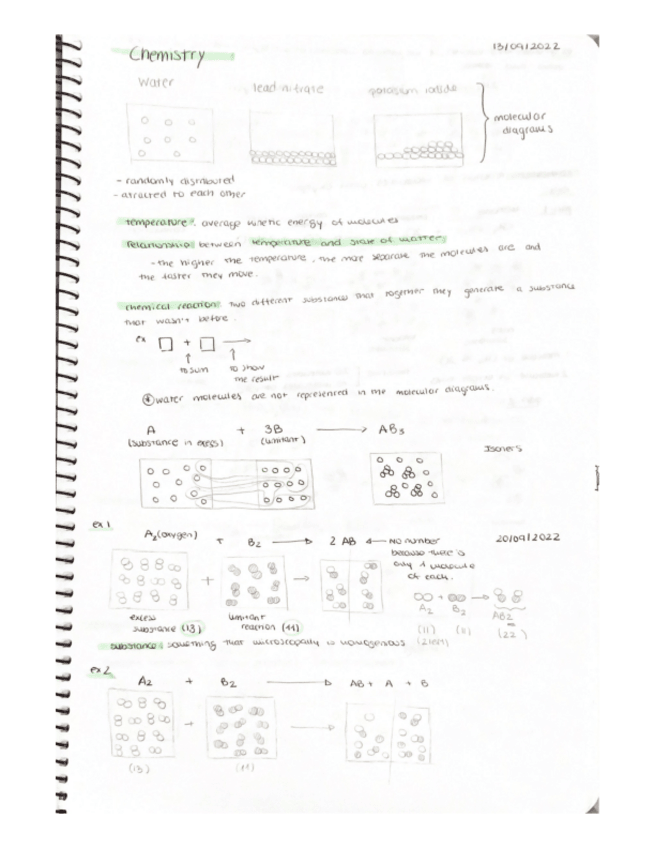 Chemistry
13/09/2022
Water
lead nitrate
potasium iodide
molecular
diagrams
- randomly
- to each other
temperature: average kinetic energy of molecules
Relationship between temperature and state of matter:
- the higher the temperature, the more separate the molecules are and
the faster they move.
chemical reaction: two different substance that together they generate a substance
that wasn't before.
ex □ + □ →
to sum
to show
the result
* water molecules are not represented in the molecular diagrams.
A + 3B → AB3
(substance in excess) (limitant)
Isomers
ex 1
A2 (oxygen) + B2 → 2 AB ← NO number
because there is
only 1 molecule
of each.
20/09/2022
+ →
excess
substance (13)
limitant
reaction (11)
A2 B2
(11) (11) (22)
substance: something that microscopally is homogenous
ex 2
A2 + B2 → AB + A + B
+ →
(13) (11)